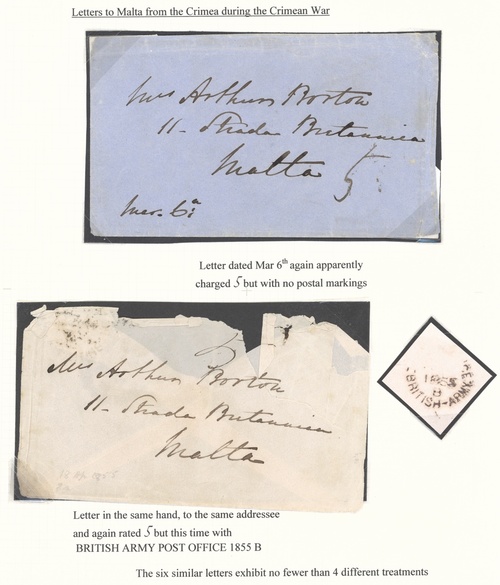 Letters to Malta from the Crimea during the Crimean War
Mrs Arthur Borton
11 - Strada Britannica
Malta 5
Mar. 6:
Letter dated Mar 6th again apparently
charged 5 but with no postal markings
Mrs Arthur Borton
11 - Strada Britannica
Malta
BRITISH-ARMY
Letter in the same hand, to the same addressee
and again rated 5 but this time with
BRITISH ARMY POST OFFICE 1855 B
The six similar letters exhibit no fewer than 4 different treatments